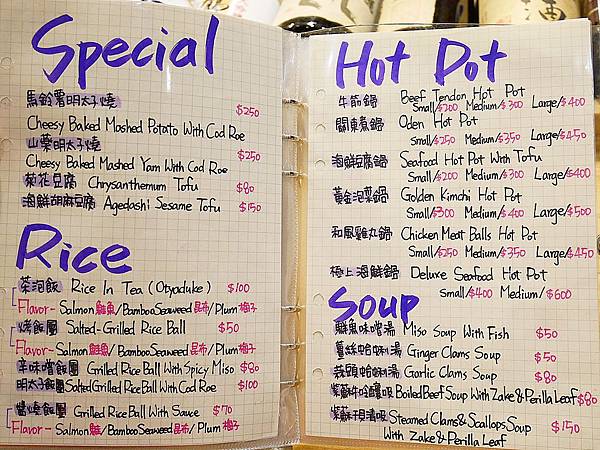 Special
馬鈴薯明太子燒
$250
Cheesy Baked Mashed Potato With Cod Roe
山藥明太子燒
$250
Cheesy Baked Mashed Yam With Cod Roe
菊花豆腐 Chrysanthemum Tofu $80
海鮮胡麻豆腐 Agedashi Sesame Tofu $150
Rice
茶泡飯 Rice In Tea (Otyaduke) $100
Flavor- Salmon 鮭魚/Bamboo Seaweed 昆布/Plum 梅子
烤飯糰 Salted-Grilled Rice Ball $50
Flavor- Salmon 鮭魚/Bamboo Seaweed 昆布/Plum 梅子
辛味噌飯糰 Grilled Rice Ball With Spicy Miso $80
明太子飯糰 Salted Grilled Rice Ball With Cod Roe $100
醬燒飯糰 Grilled Rice Ball With Sauce $70
Flavor- Salmon 鮭/Bamboo Seaweed 昆布/Plum 梅子
Hot Pot
牛筋鍋 Beef Tendon Hot Pot
Small/$200 Medium/$300 Large/$400
關東煮鍋 Oden Hot Pot
Small/$250 Medium/$350 Large/$450
海鮮豆腐鍋 Seafood Hot Pot With Tofu
Small/$200 Medium/$300 Large/$400
黃金泡菜鍋 Golden Kimchi Hot Pot
Small/$300 Medium/$400 Large/$500
和風雞丸鍋 Chicken Meat Balls Hot Pot
Small/$250 Medium/$350 Large/$450
極上海鮮鍋 Deluxe Seafood Hot Pot
Small/$400 Medium/$600
Soup
鮮魚味噌湯 Miso Soup With Fish $50
薑絲蛤蜊湯 Ginger Clams Soup $50
蒜頭蛤蜊湯 Garlic Clams Soup $80
Boiled Beef Soup With Zake & Perilla Leaf $80
Steamed Clams & Scallops Soup $150
With Zake & Perilla Leaf